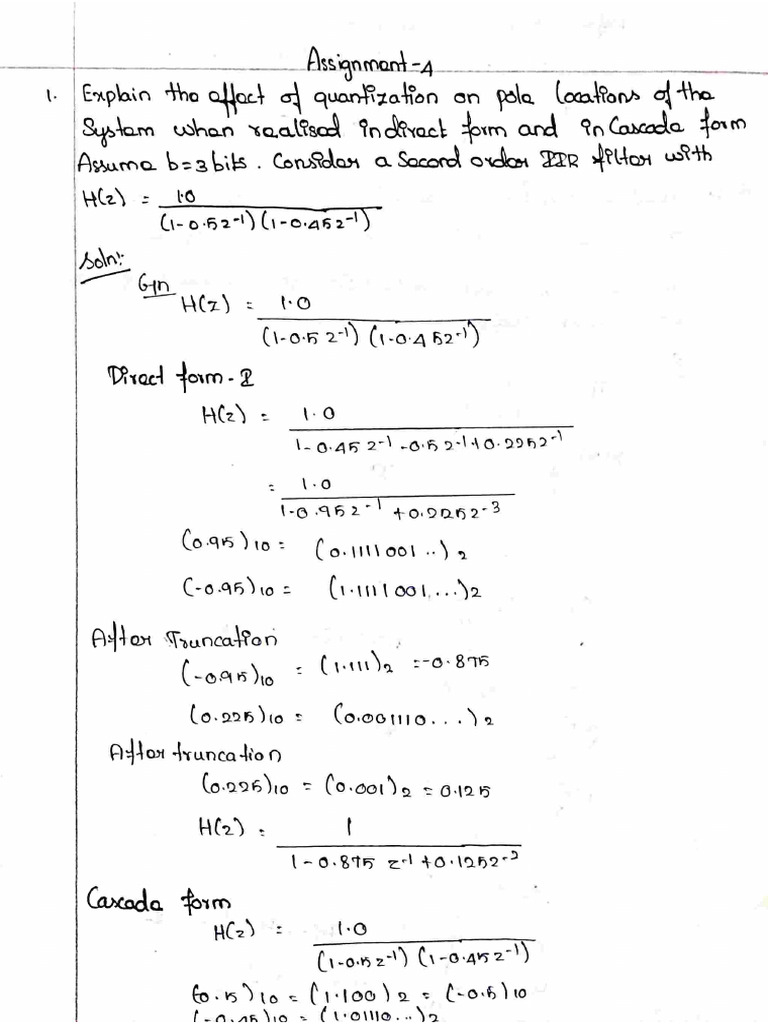 Assignment-4
1. Explain the effect of quantization on pole locations of the
System when realised in direct form and in Cascade form
Assume b=3 bits. Consider a Second order IIR filter with
H(z) = 1.0 / (1-0.5z⁻¹)(1-0.45z⁻¹)
Soln:-
Gn
H(z) = 1.0 / (1-0.5z⁻¹)(1-0.45z⁻¹)
Direct form-I
H(z) = 1.0 / 1-0.45z⁻¹-0.5z⁻¹+0.225z⁻¹
= 1.0 / 1-0.95z⁻¹+0.225z⁻³
(0.95)₁₀ = (0.1111001..)₂
(-0.95)₁₀ = (1.1111001...)₂
After Truncation
(-0.95)₁₀ = (1.111)₂ = -0.875
(0.225)₁₀ = (0.001110...)₂
After truncation
(0.225)₁₀ = (0.001)₂ = 0.125
H(z) = 1 / 1-0.875z⁻¹+0.125z⁻²
Cascade form
H(z) = 1.0 / (1-0.5z⁻¹)(1-0.45z⁻¹)
(-0.5)₁₀ = (1.100)₂ = (-0.5)₁₀
(-0.45)₁₀ = (1.01110..)₂